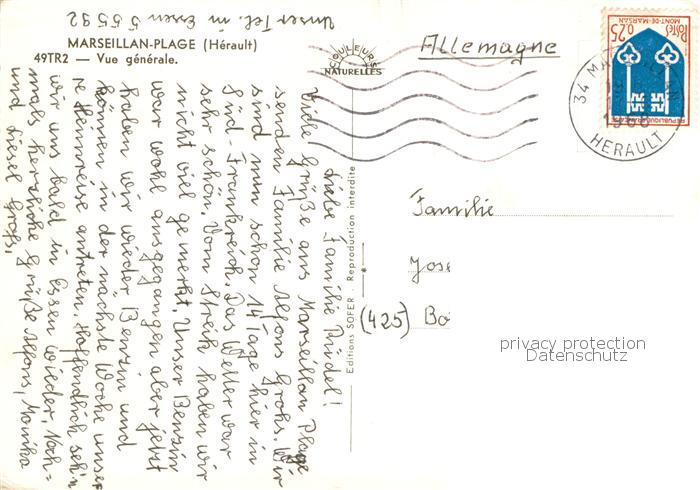 Unser Tel. in Essen 5 55 92
MARSEILLAN-PLAGE (Hérault)
49TR2 — Vue générale.
Liebe Familie Pridel!
Viele Grüße aus Marseillan Plage
senden Familie Alfons Grohs. Wir
sind nun schon 14 Tage hier in
Süd-Frankreich. Das Wetter war
sehr schön. Vom Streik haben wir
nicht viel gemerkt. Unser Benzin
war wohl ausgegangen aber jetzt
haben wir wieder Benzin und
können in der nächste Woche unser
re Heimreise antreten. Hoffendlich seh'n
wir uns bald in Essen wieder, Noch=
mals herzliche Grüße Alfons, Monika
und Liesel Grohs,
COULEURS
NATURELLES
Editions SOFER . Reproduction interdite
Allemagne
0,25
Postes
MONT-DE-MARSAN
REPUBLIQUE FRANÇAISE
34 MARSEILLAN
HERAULT
Familie
Jose
(425) Bo
privacy protection
Datenschutz